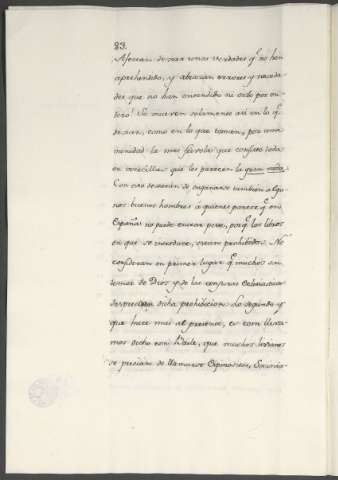 23.
Afectan de usar unas verdades q.e no han
aprehendido, y abrazan errores y noveda-
des que no han entendido ni oido por en-
tero! Se mueven solamente asi en lo q.
desean, como en lo que temen, por una
vanidad la mas frivola que consiste toda
en vocecillas que les parecen la gran moda.
Con esto desearán de engañarse tambien algu-
nos buenos hombres á quienes parece q.e en
España no puede entrar peste, porq.e los libros
en que se introduce, estan prohibidos. No
consideran en primer lugar q.e muchos sin
temor de Dios y de las censuras Eclesiasticas
desprecian dicha prohibicion. Lo segundo y
que hace mas al presente, es como lleva-
mos dicho con Baile, que muchos livianos
se precian de llamarse Espinosistas,